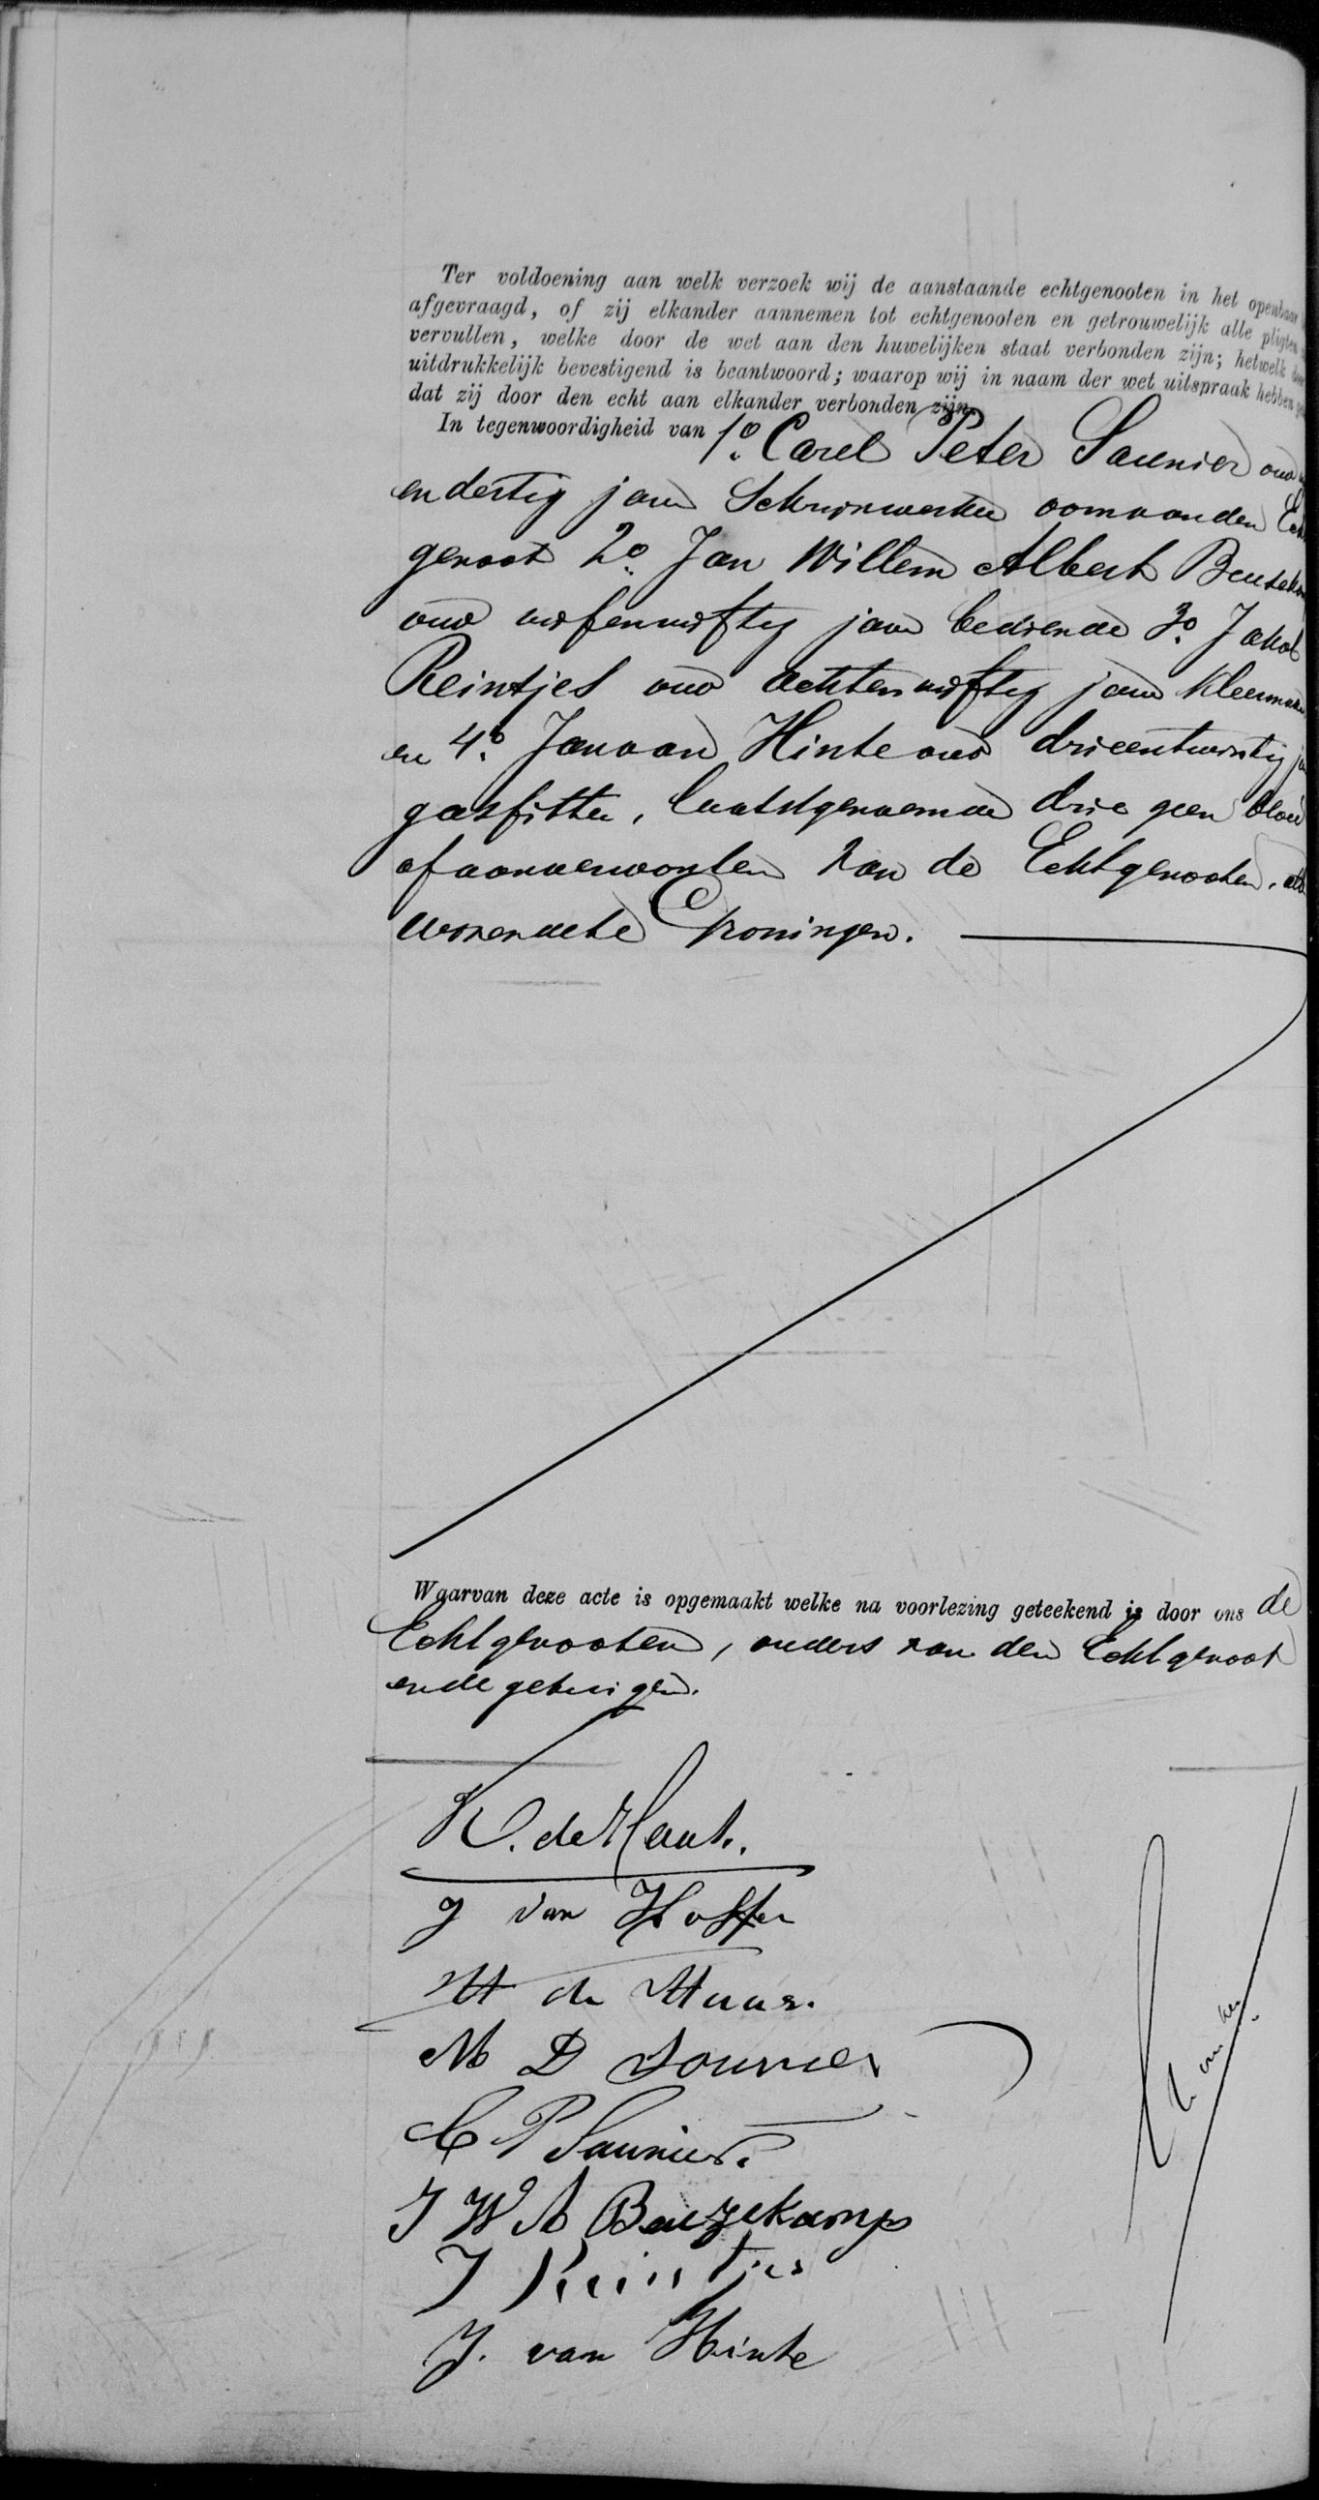 Ter voldoening aan welk verzoek wij de aanstaande echtgenooten in het openbaar
afgevraagd, of zij elkander aannemen tot echtgenooten en getrouwelijk alle pligten
vervullen, welke door de wet aan den huwelijken staat verbonden zijn; hetwelk door
uitdrukkelijk bevestigend is beantwoord; waarop wij in naam der wet uitspraak hebben
dat zij door den echt aan elkander verbonden zijn.
In tegenwoordigheid van 1º. Carel Peter Saunier oud
en dertig jaar Schrijnwerker oom van den
genoot 2º. Jan Willem Albert
oud vijfenvijftig jaar bediende 3º. Jakob
Reintjes oud achtenvijftig jaar kleermaker
en 4º. Jan van Hinte oud drieentwintig
gasfitter, laatstgenoemde drie geen bloed
of aanverwanten van de Echtgenooten,
wonende te Groningen.
Waarvan deze acte is opgemaakt welke na voorlezing geteekend is door ons de
Echtgenooten, ouders van den Echtgenoot
en de getuigen.
K. de Haas.
J van
H de Haas.
M D Sounier
C P Saunier.
J W A Beuzekamp
J Reintjes
J. van Hinte